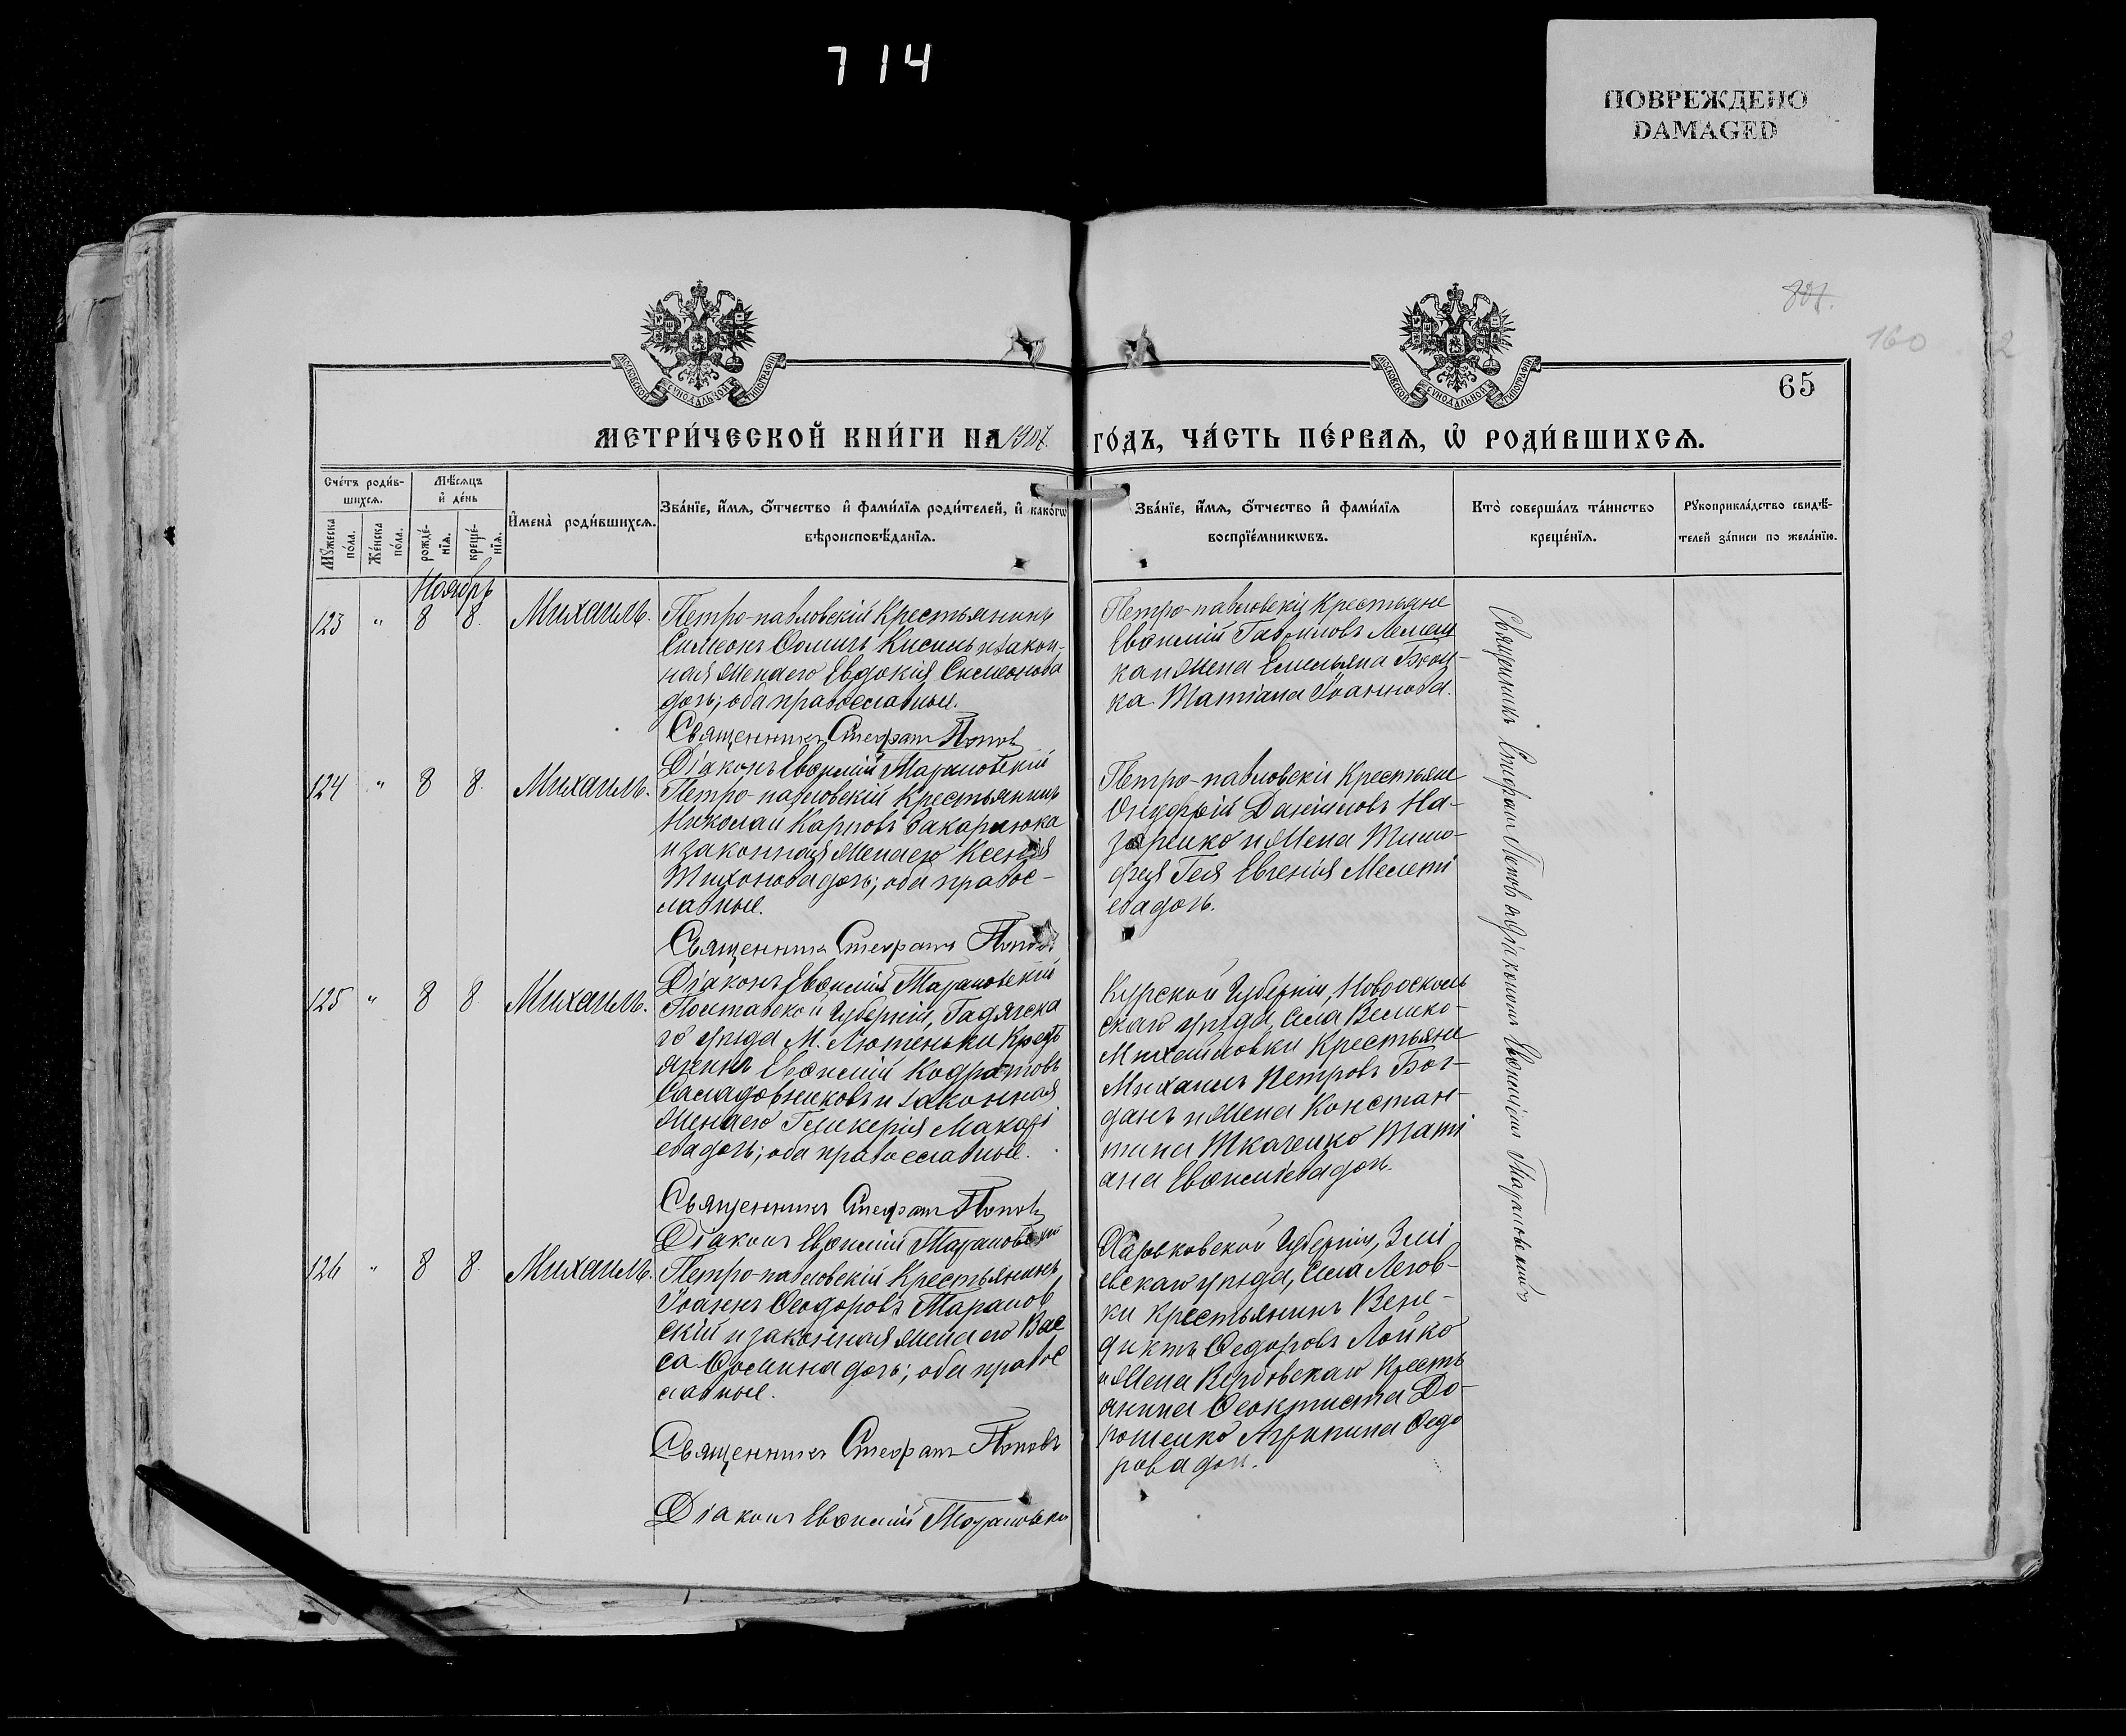 714
ПОВРЕЖДЕНО
DAMAGED
807.
160
2
65
МОСКОВСКОЙ СѴНОДАЛЬНОЙ ТИПОГРАФІИ
МОСКОВСКОЙ СѴНОДАЛЬНОЙ ТИПОГРАФІИ
МЕТРИ́ЧЕСКОЙ КНИ́ГИ НА 1907. ГО́ДЪ, ЧА́СТЬ ПЕ́РВАѦ, Ѡ҆ РОДИ́ВШИХСѦ.
Сче́тъ роди́в-
шихсѧ.
Мꙋ́жеска по́ла.
Же́нска по́ла.
Мѣ́сѧцъ
и҆ де́нь
рожде́-
нїѧ.
креще́-
нїѧ.
И҆мена̀ роди́вшихсѧ.
Зва́нїе, и҆́мѧ, о҆́тчество и҆ фами́лїѧ роди́телей, и҆ како́гѡ
вѣроисповѣ́данїѧ.
Зва́нїе, и҆́мѧ, о҆́тчество и҆ фами́лїѧ
воспрїе́мникѡвъ.
Кто̀ соверша́лъ та́инство
креще́нїѧ.
Рꙋкоприкла́дство свидѣ́-
телей за́писи по жела́нїю.
Ноябрь
123 " 8 8. Михаилъ.
Петро-павловскій Крестьянинъ
Симеонъ Ѳоминъ Кисиль и закон-
ная жена его Евдокія Симеонова
дочь; оба православные.
Священникъ Стефанъ Поповъ
Діаконъ Евѳимій Тарановскій
Петро-павловскіе Крестьяне
Евѳимій Гавриловъ Лемеш
ка и жена Емельяна Бжоц-
ка Татіана Іоаннова.
124 " 8 8. Михаилъ.
Петро-павловскій Крестьянинъ
Николай Карповъ Захарлюка
и законная жена его Ксенія
Тихонова дочь; оба правос-
лавные.
Священникъ Стефанъ Поповъ
Діаконъ Евѳимій Тарановскій
Петро-павловскіе Крестьяне
Онуфрій Даниловъ На-
заренко и жена Тимо-
фея Гея Евгенія Мелеті
ева дочь.
125 " 8 8. Михаилъ.
Полтавской Губерніи, Гадячска
го уѣзда М. Лютеньки Крест
янинъ Евѳимій Кодратовъ
Саладовниковъ и законная
жена его Гликерія Макарі
ева дочь; оба православные.
Священникъ Стефанъ Поповъ
Діаконъ Евѳимій Тарановскій
Курской Губерніи, Новооскол
скаго уѣзда, села Велико-
Михайловки Крестьяне
Михаилъ Петровъ Бог-
данъ и жена Констан-
тина Ткаченко Таті
ана Евѳиміева дочь.
126 " 8 8. Михаилъ.
Петро-павловскій Крестьянинъ
Іоаннъ Ѳеодоровъ Таранов
скій и законная жена его Вас
са Ѳомина дочь; оба правос
лавные.
Священникъ Стефанъ Поповъ
Діаконъ Евѳимій Тарановскій
Харьковской Губерніи, Змі
евскаго уѣзда, села Лозов-
ки крестьянинъ Вене-
диктъ Ѳедоровъ Лойко
и жена Вербовскаго Кресть
янина Ѳеоктиста До-
рошенко Агрипина Ѳедо
рова дочь.
Священникъ Стефанъ Поповъ и діаконъ Евѳимій Тарановскій